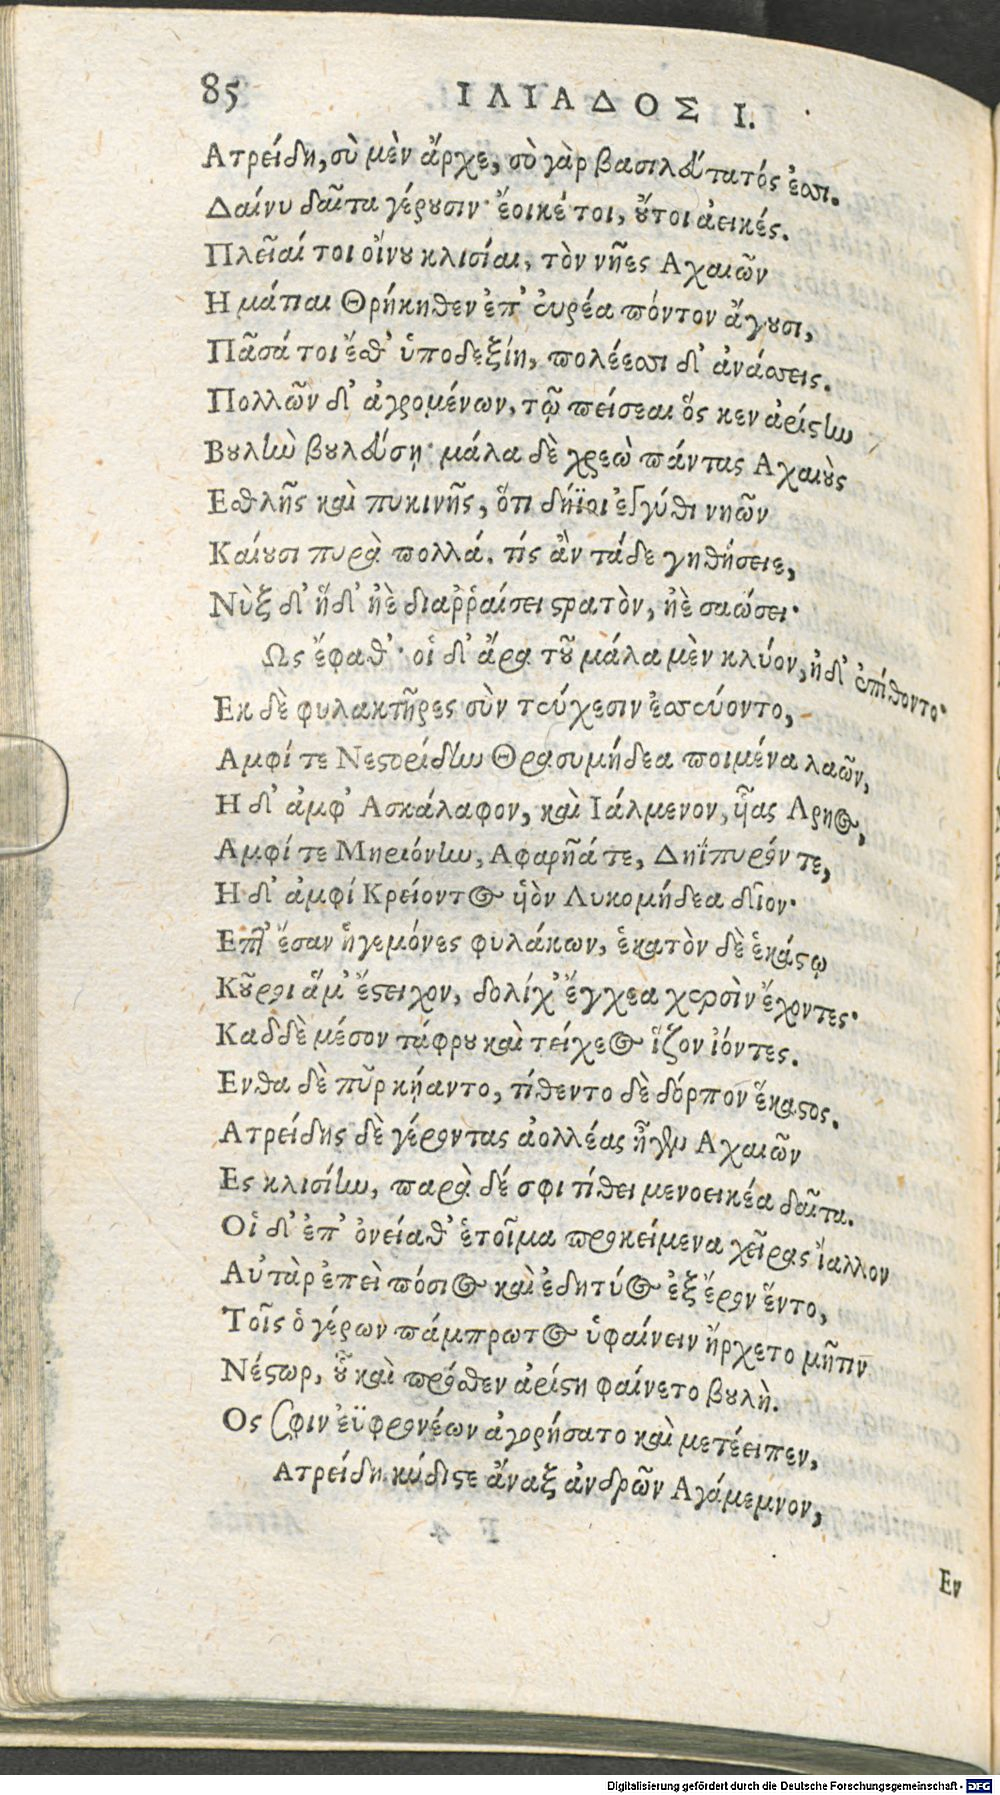 85 ΙΛΙΑΔΟΣ Ι.
Ατρείδη, σὺ μὲν ἄρχε, σὺ γὰρ βασιλεύτατός ἐσσι.
Δαίνυ δαῖτα γέρουσιν· ἔοικέ τοι, οὔτοι ἀεικές.
Πλεῖαί τοι οἴνου κλισίαι, τὸν νῆες Αχαιῶν
Η μάτιαι Θρήκηθεν ἐπ' ευρέα πόντον ἄγουσι,
Πᾶσά τοι ἔσθ' ὑποδεξίη, πολέεσσι δ' ἀνάσσεις.
Πολλῶν δ' ἀγρομένων, τῷ πείσεαι ὅς κεν ἀρίστην
Βουλὴν βουλεύσῃ· μάλα δὲ χρεὼ πάντας Αχαιοὺς
Εσθλῆς καὶ πυκινῆς, ὅτι δήϊοι ἐγγύθι νηῶν
Καίουσι πυρὰ πολλά. τίς ἂν τάδε γηθήσειε,
Νὺξ δ' ἥδ' ἠὲ διαῤῥαίσει στρατὸν, ἠὲ σαώσει·
Ως ἔφαθ'· οἱ δ' ἄρα τοῦ μάλα μὲν κλύον, ἠδ' ἐπίθοντο·
Εκ δὲ φυλακτῆρες σὺν τεύχεσιν ἐσσεύοντο,
Αμφί τε Νεστορίδην Θρασυμήδεα ποιμένα λαῶν,
Η δ' ἀμφ' Ασκάλαφον, καὶ Ιάλμενον, ὗας Αρηος,
Αμφί τε Μηριόνην, Αφαρῆά τε, Δηΐπυρόν τε,
Η δ' ἀμφί Κρείοντος ὑὸν Λυκομήδεα δῖον·
Επτ' ἔσαν ἡγεμόνες φυλάκων, ἑκατὸν δὲ ἑκάστῳ
Κοῦροι ἅμ' ἔστειχον, δολίχ' ἔγχεα χερσὶν ἔχοντες·
Καδδὲ μέσον τάφρου καὶ τείχεος ἵζον ἰόντες.
Ενθα δὲ πῦρ κήαντο, τίθεντο δὲ δόρπον ἕκαστος.
Ατρείδης δὲ γέροντας ἀολλέας ἦγεν Αχαιῶν
Ες κλισίην, παρὰ δέ σφι τίθει μενοεικέα δαῖτα.
Οἱ δ' ἐπ' ὀνείαθ' ἑτοῖμα προκείμενα χεῖρας ἴαλλον
Αὐτὰρ ἐπεὶ πόσιος καὶ ἐδητύος ἐξ ἔρον ἕντο,
Τοῖς ὁ γέρων πάμπρωτος ὑφαίνειν ἤρχετο μῆτιν
Νέστωρ, οὗ καὶ πρόσθεν ἀρίστη φαίνετο βουλὴ.
Ος σφιν ἐϋφρονέων ἀγορήσατο καὶ μετέειπεν,
Ατρείδη κύδιστε ἄναξ ἀνδρῶν Αγάμεμνον,
Εν
Digitalisierung gefördert durch die Deutsche Forschungsgemeinschaft - DFG